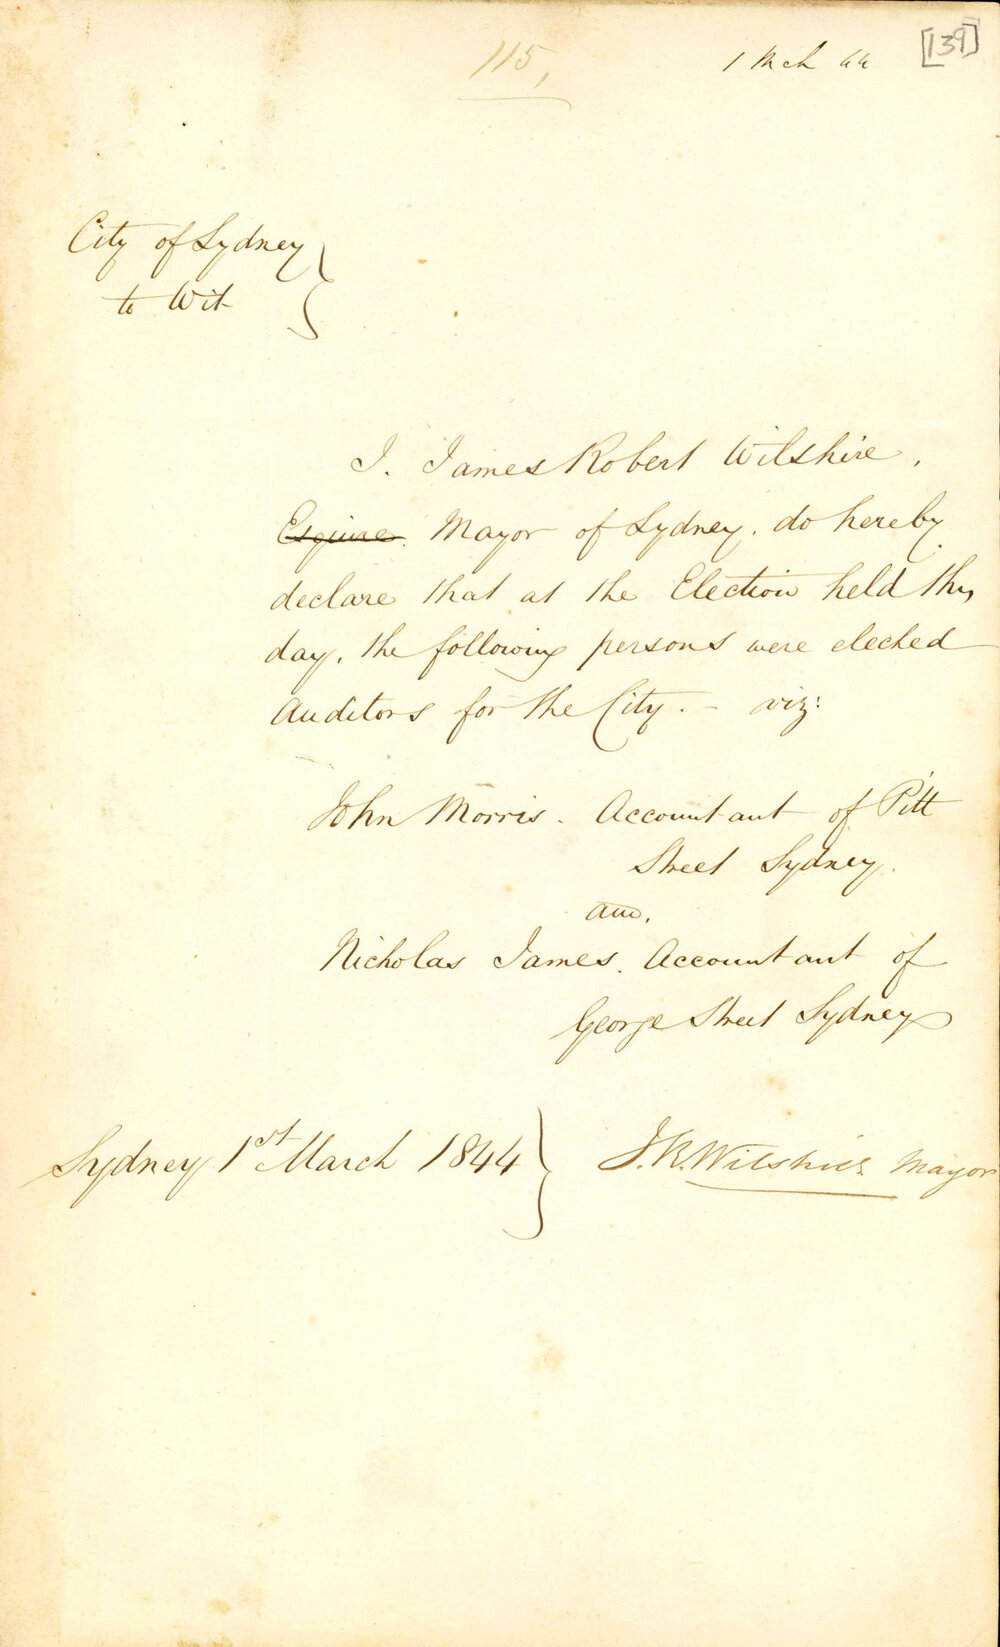 [139]
115,
1 Mch 44
City of Sydney
to Wit
I. James Robert Wilshire,
Esquire. Mayor of Sydney. do hereby
declare that at the Election held this
day, the following persons were elected
Auditors for the City. - viz:
John Morris. Accountant of Pitt
Street Sydney.
and.
Nicholas James. Accountant of
George Street Sydney
Sydney 1st March 1844
J. R. Wilshire Mayor